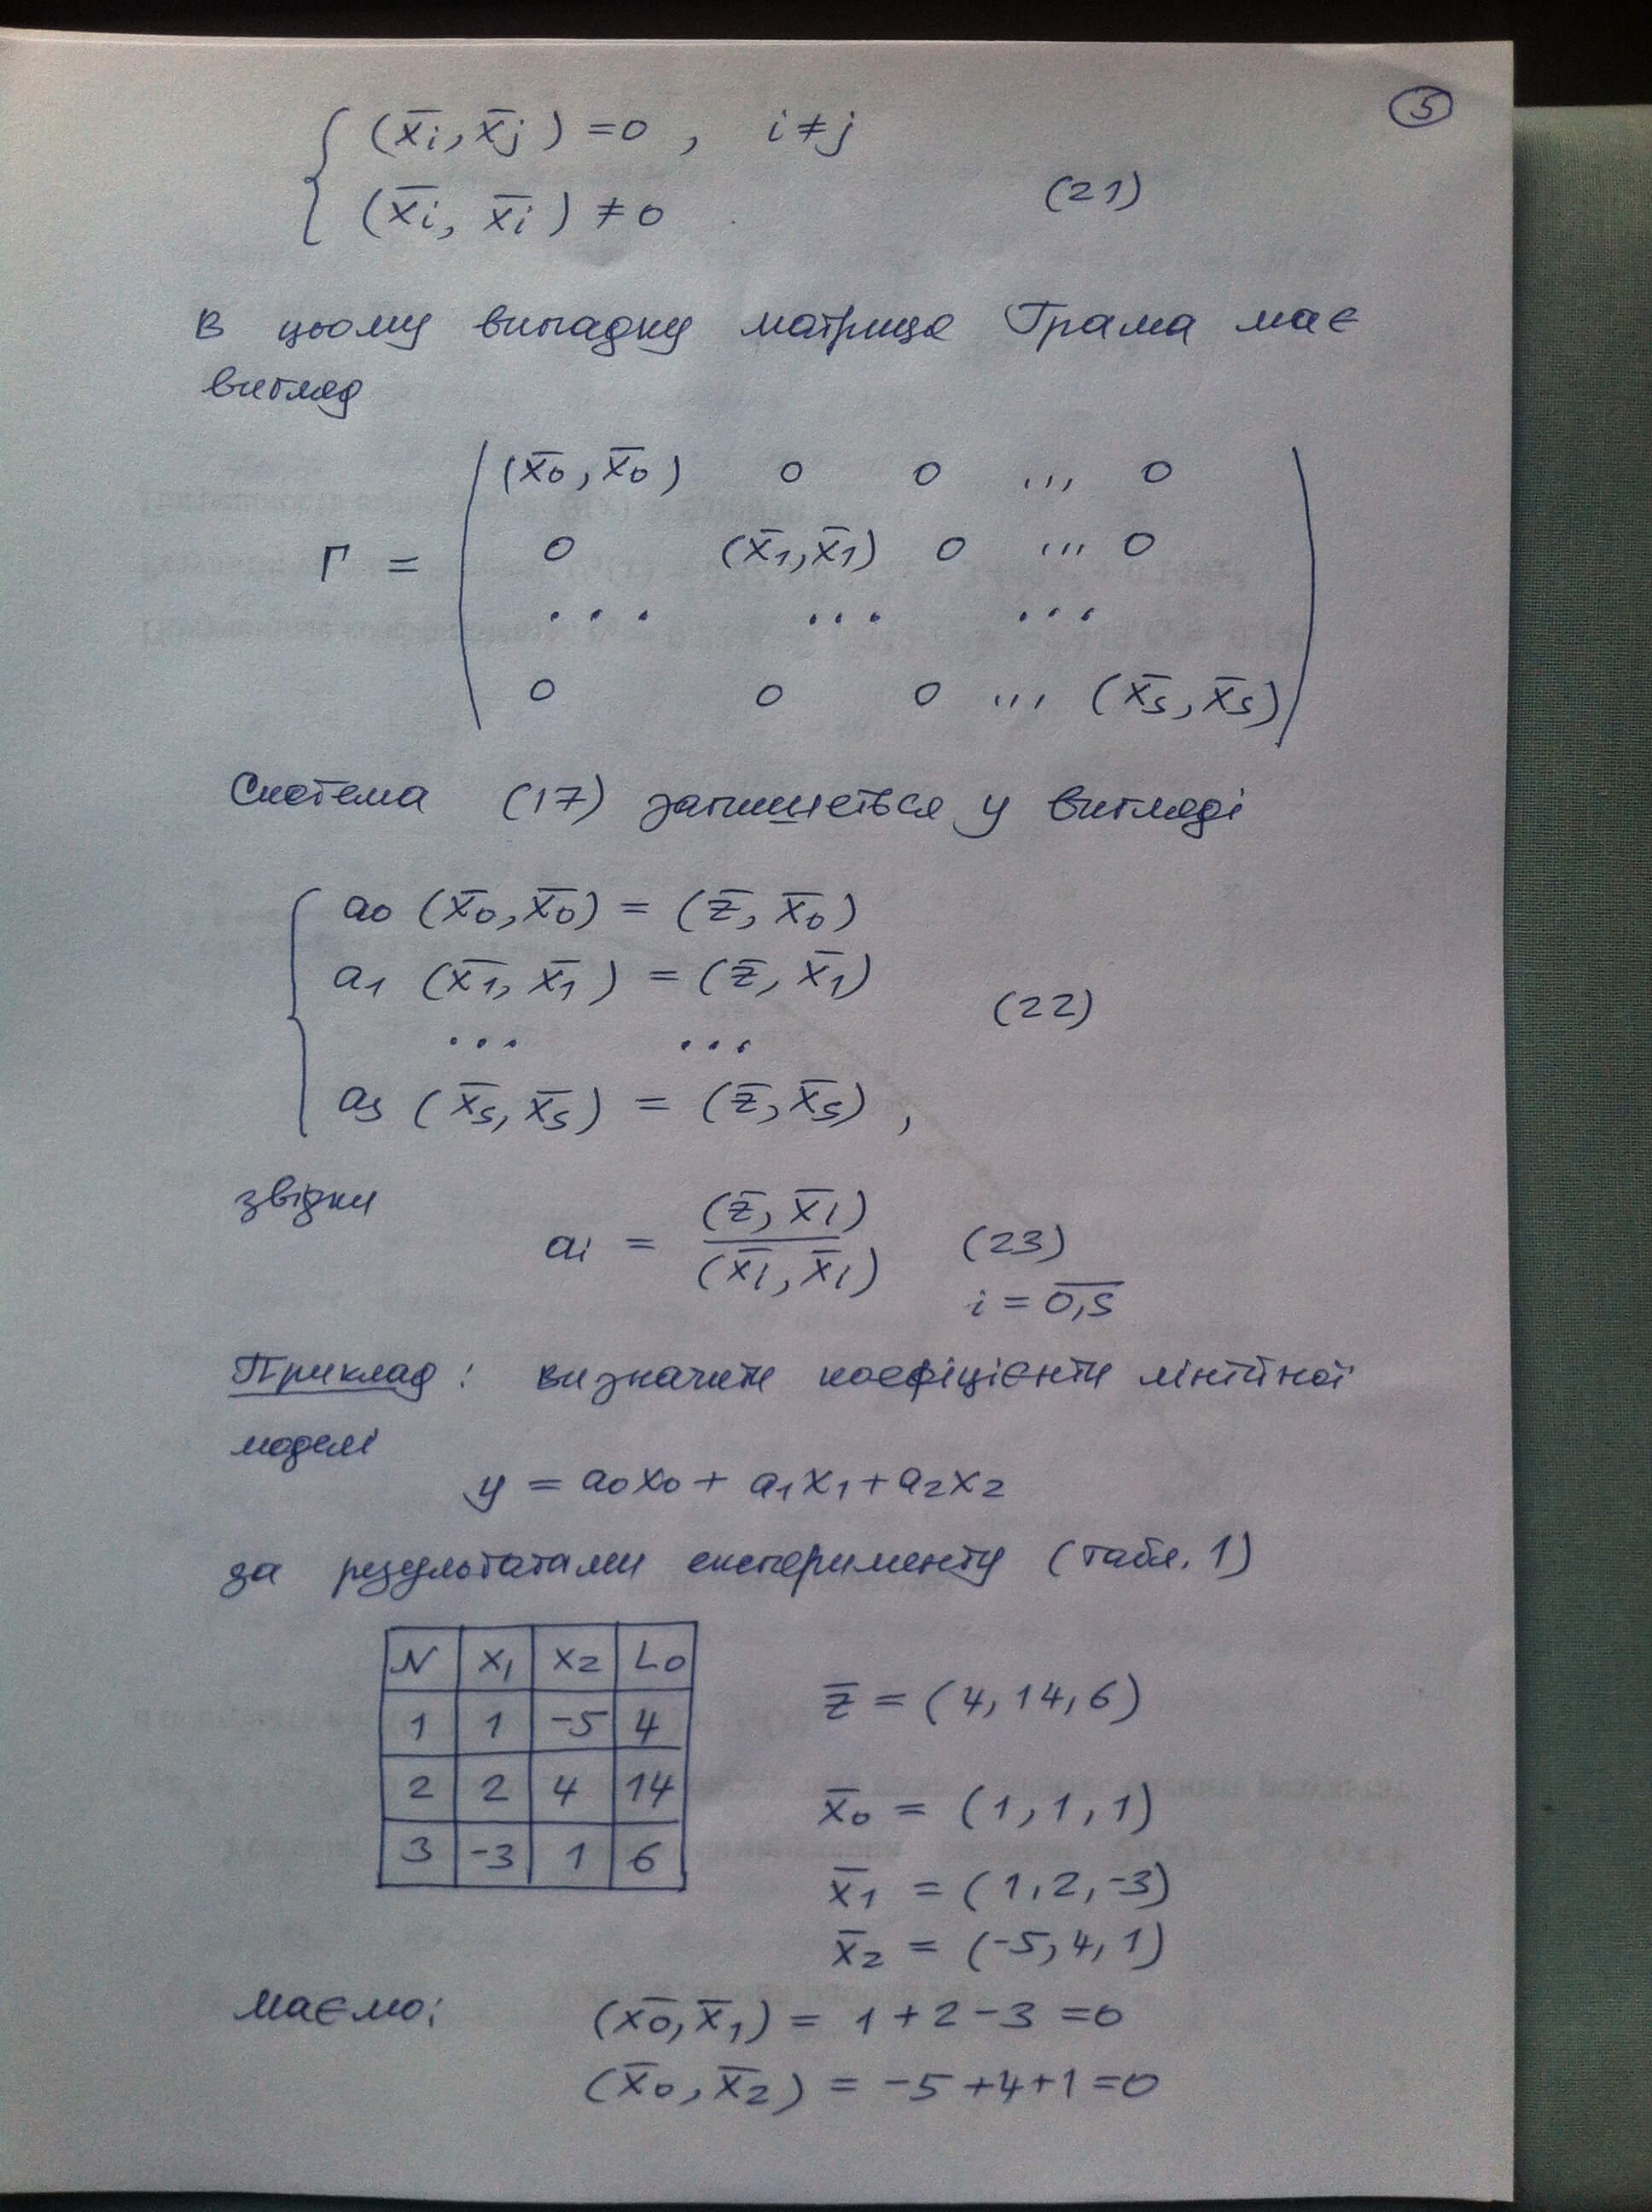 5
(x̄i, x̄j) = 0, i ≠ j
(x̄i, x̄i) ≠ 0 (21)
В цьому випадку матриця Грама має
вигляд
(x̄0, x̄0) 0 0 ... 0
Γ = 0 (x̄1, x̄1) 0 ... 0
... ... ...
0 0 0 ... (x̄s, x̄s)
Система (17) запишеться у вигляді
a0 (x̄0, x̄0) = (z̄, x̄0)
a1 (x̄1, x̄1) = (z̄, x̄1)
(22)
... ...
as (x̄s, x̄s) = (z̄, x̄s),
звідки
ai = (z̄, x̄i) / (x̄i, x̄i) (23)
i = 0,s
Приклад: визначити коефіцієнти лінійної
моделі
y = a0x0 + a1x1 + a2x2
за результатами експерименту (табл. 1)
N x1 x2 L0
1 1 -5 4
2 2 4 14
3 -3 1 6
z̄ = (4, 14, 6)
x̄0 = (1, 1, 1)
x̄1 = (1, 2, -3)
x̄2 = (-5, 4, 1)
маємо:
(x̄0, x̄1) = 1 + 2 - 3 = 0
(x̄0, x̄2) = -5 + 4 + 1 = 0